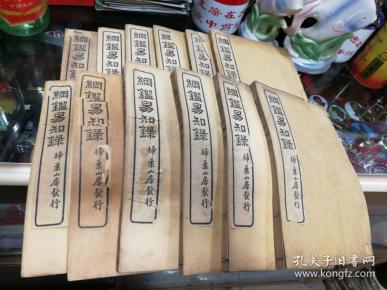 綱鑑易知錄
綱鑑易知錄
綱鑑易知錄
綱鑑易知錄
綱鑑易知錄
綱鑑易知錄
綱鑑易知錄 掃葉山房發行
綱鑑易知錄 掃葉山房發行
綱鑑易知錄 掃葉山房發行
綱鑑易知錄 掃葉山房發行
綱鑑易知錄 掃葉山房發行
綱鑑易知錄 掃葉山房發行
孔夫子旧书网
www.kongfz.com